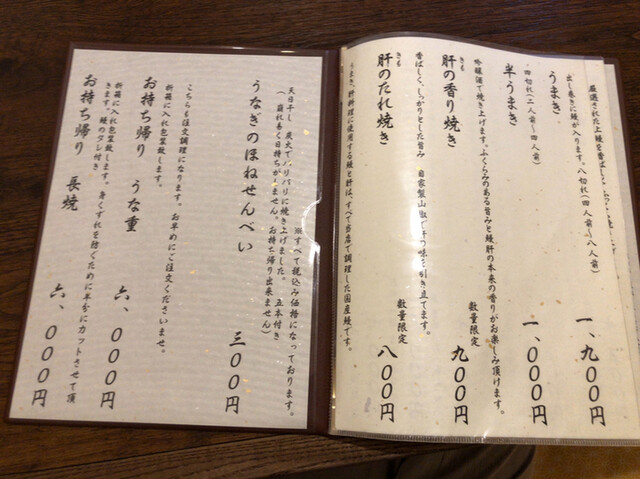 厳選された上鰻を香ばしく
うまき 一、九〇〇円
出し巻きに鰻が入ります。八切れ(四人前〜八人前)
半うまき 一、〇〇〇円
四切れ(二人前〜四人前)
肝の香り焼き 数量限定 九〇〇円
きも
吟醸酒で焼き上げます。ふくらみのある旨みと鰻肝の本来の香りがお楽しみ頂けます。
肝のたれ焼き 数量限定 八〇〇円
きも
香ばしく、しっかりとした旨み 自家製山椒で その味を引き立てます。
うまき、肝料理に使用する鰻と肝は、すべて当店で調理した国産鰻です。
※すべて税込み価格になっております。
天日干し、炭火でパリパリに焼き上げました。 五本付き
(崩れ易く日持ちがしません。お持ち帰り出来ません)
うなぎのほねせんべい 三〇〇円
こちらも注文調理になります。お早めにご注文くださいませ。
折箱に入れ包装致します。
お持ち帰り うな重 六、〇〇〇円
折箱に入れ包装致します。身くずれを防ぐために半分にカットさせて頂
きます。鰻のタレ付き
お持ち帰り 長焼 六、〇〇〇円